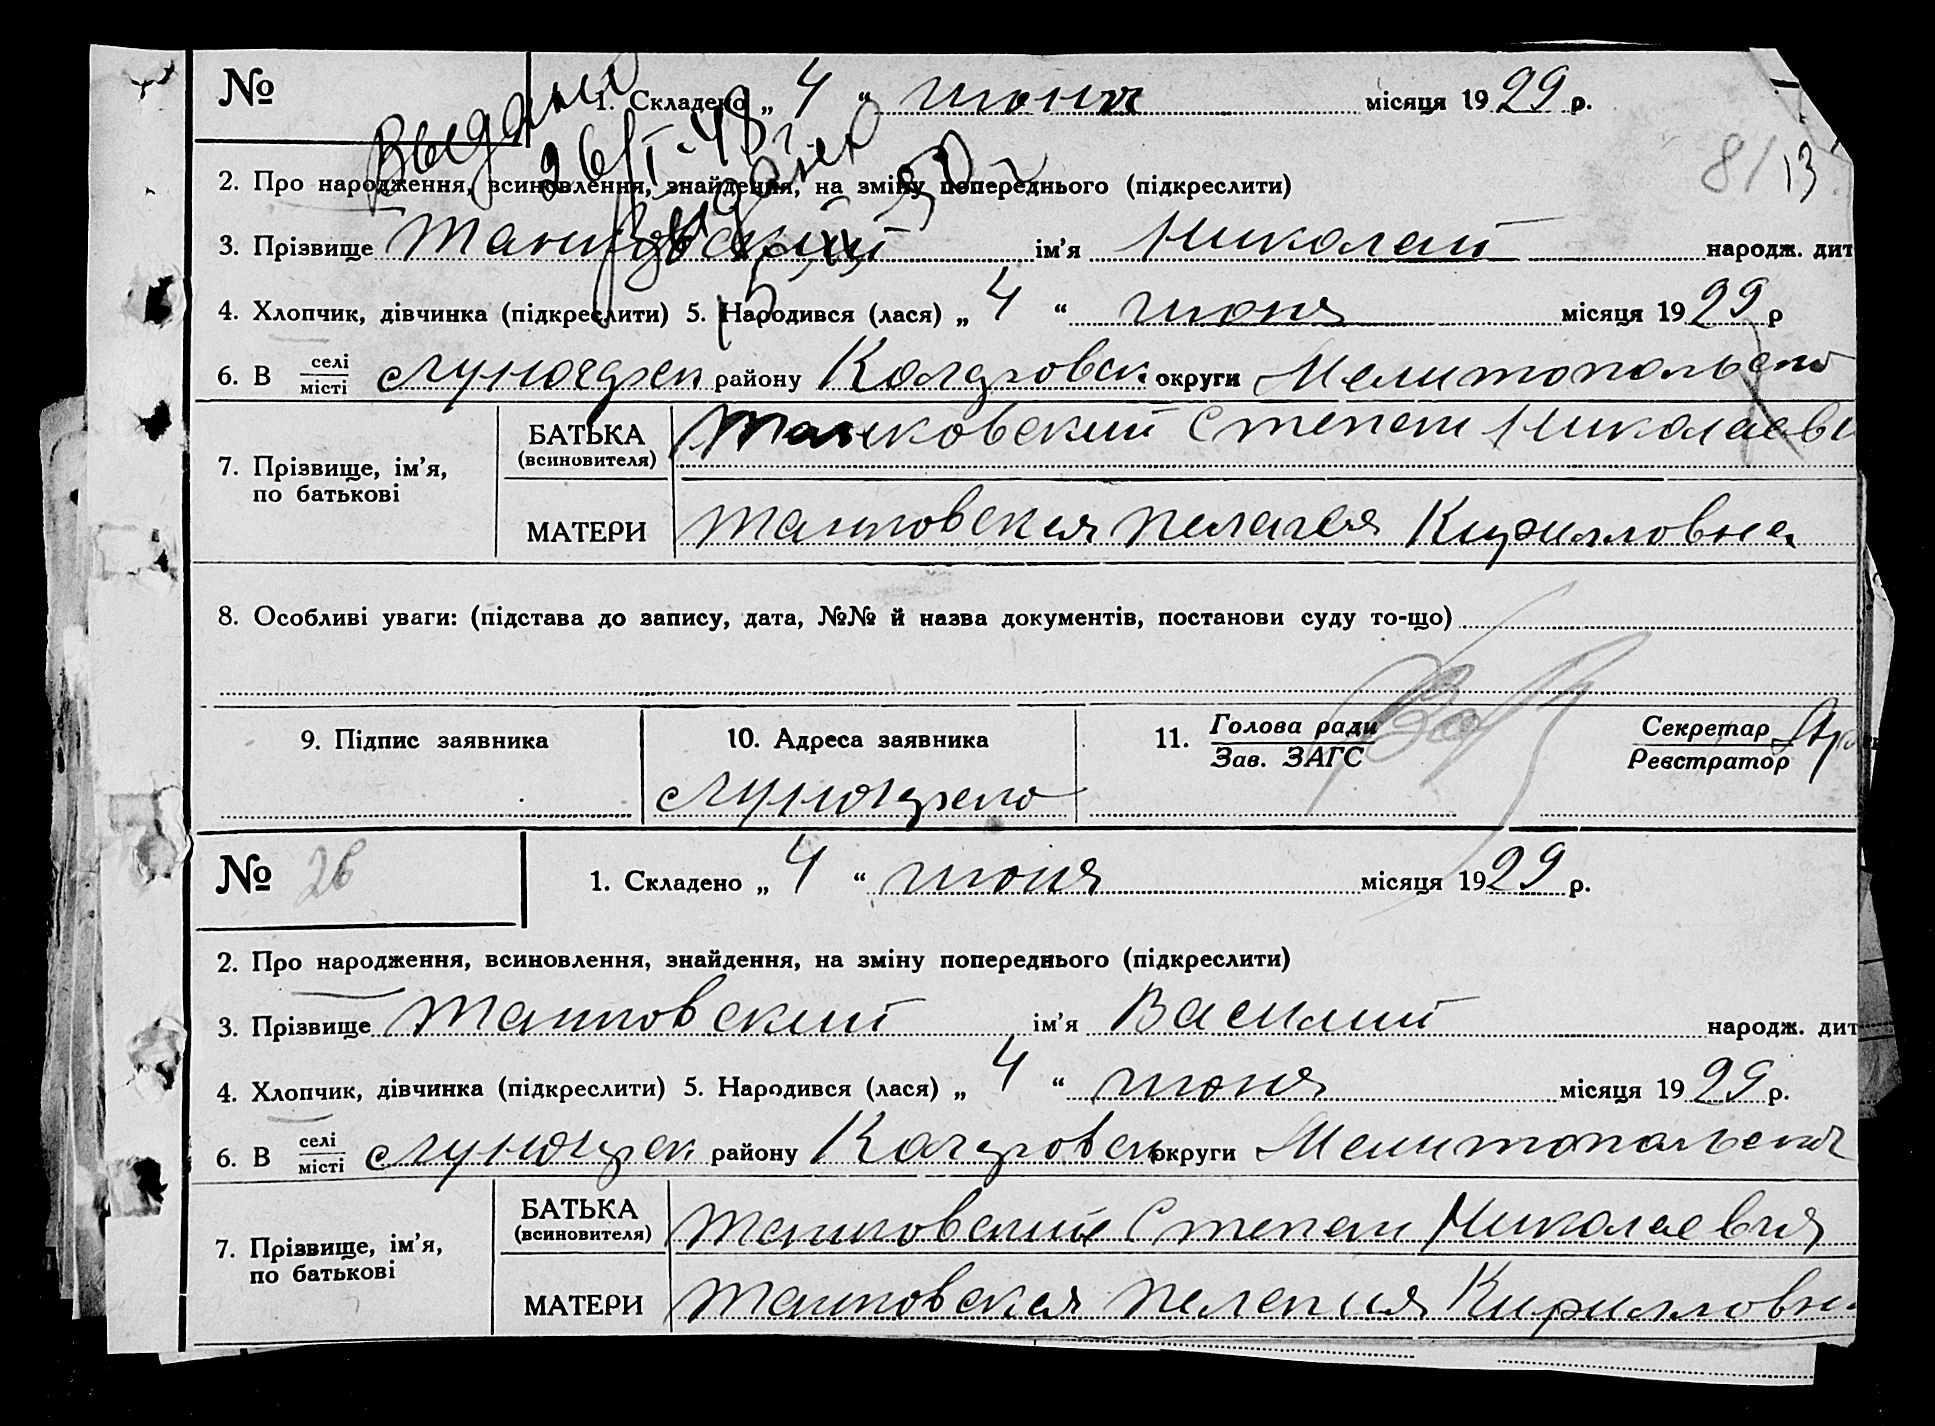 №
1. Складено „ 4 “ июня місяця 1929 р.
Выданы
26/I-48 г.
Выдано
50 г
81 13
2. Про народження, всиновлення, знайдення, на зміну попереднього (підкреслити)
3. Прізвище ім’я Николай народж. дит
4. Хлопчик, дівчинка (підкреслити) 5. Народився (лася) „ 4 “ июня місяця 1929 р
6. В селі/місті району округи Мелитопольско
7. Прізвище, ім’я, по батькові
БАТЬКА (всиновителя) Танковский Степан Николаеви
МАТЕРИ Танковская Пелагея Кирилловна
8. Особливі уваги: (підстава до запису, дата, №№ й назва документів, постанови суду то-що)
9. Підпис заявника
10. Адреса заявника
11. Голова ради/Зав. ЗАГС
Секретар/Реєстратор
№ 26
1. Складено „ 4 “ июня місяця 1929 р.
2. Про народження, всиновлення, знайдення, на зміну попереднього (підкреслити)
3. Прізвище Танковский ім’я Василий народж. дит
4. Хлопчик, дівчинка (підкреслити) 5. Народився (лася) „ 4 “ июня місяця 1929 р.
6. В селі/місті району округи Мелитопольской
7. Прізвище, ім’я, по батькові
БАТЬКА (всиновителя) Танковский Степан Николаевич
МАТЕРИ Танковская Кирилловн